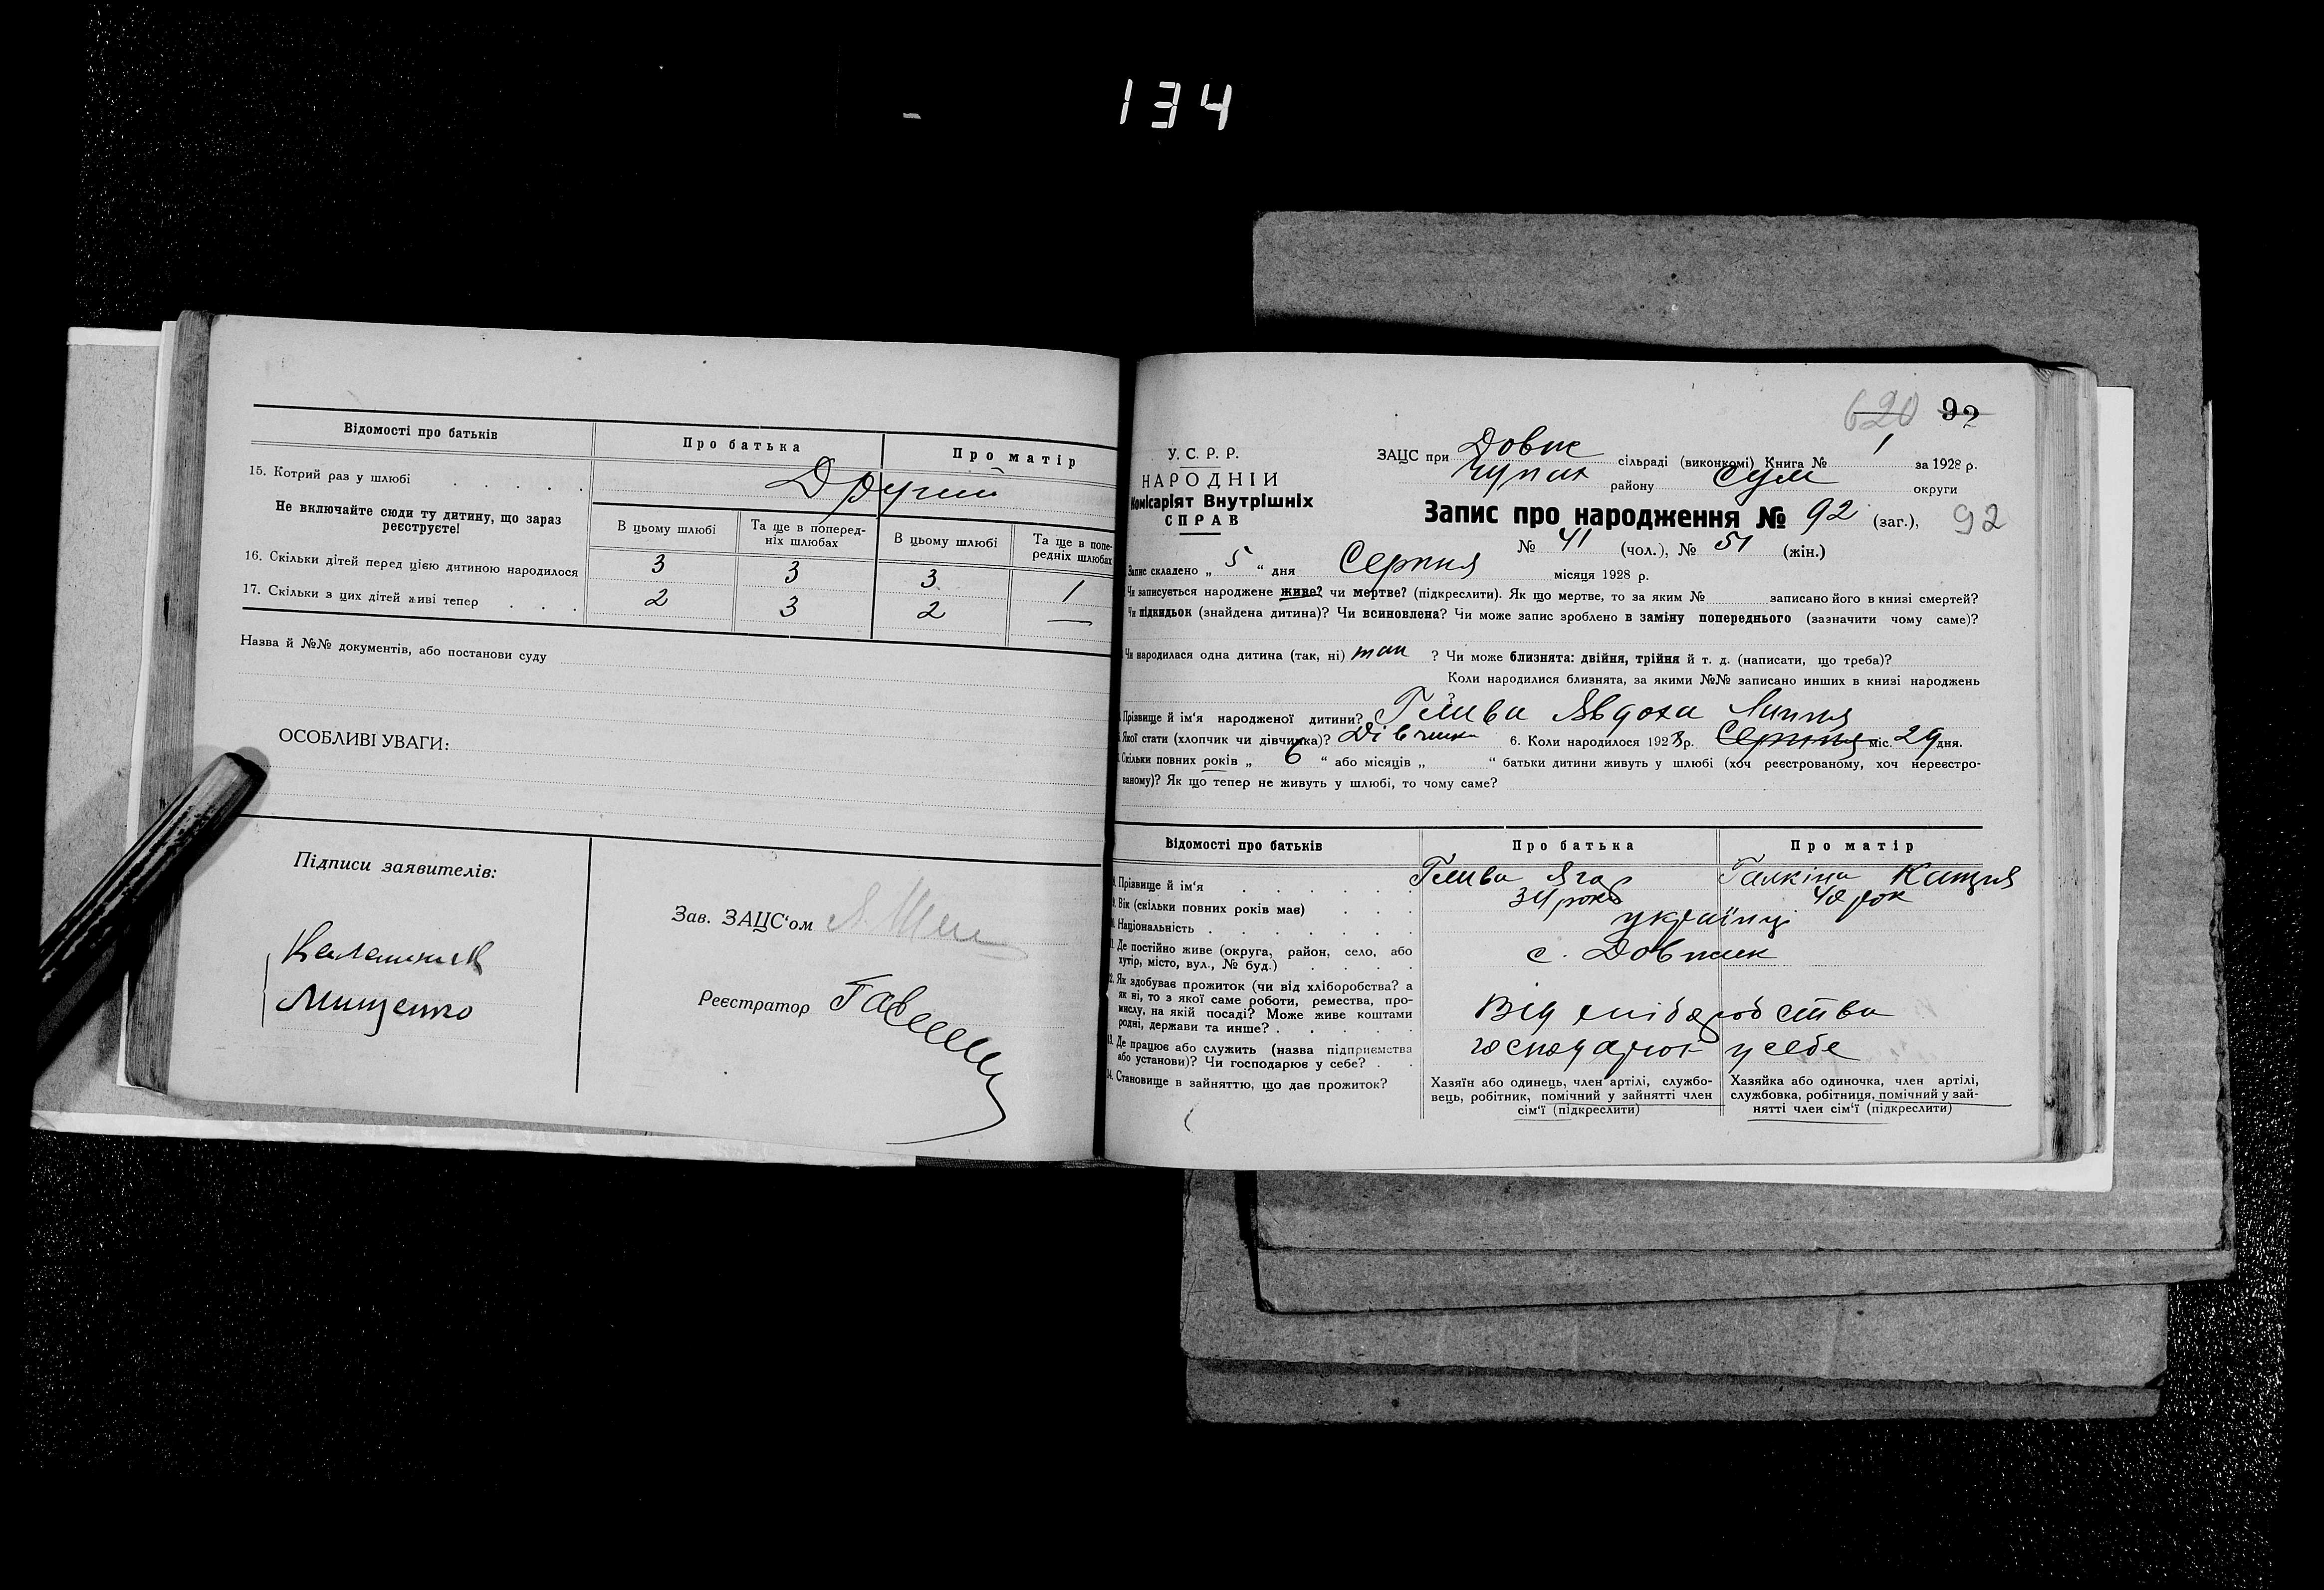 134
Відомості про батьків
Про батька
Про матір
15. Котрий раз у шлюбі
Другий
Не включайте сюди ту дитину, що зараз
реєструєте!
В цьому шлюбі
Та ще в поперед-
ніх шлюбах
В цьому шлюбі
Та ще в попе-
редніх шлюбах
16. Скільки дітей перед цією дитиною народилося
3 3 3 1
17. Скільки з цих дітей живі тепер
2 3 2 —
Назва й №№ документів, або постанови суду
ОСОБЛИВІ УВАГИ:
Підписи заявителів:
Мищенко
Зав. ЗАЦС'ом
Реєстратор
620 92
У. С. Р. Р.
НАРОДНІЙ
Комісаріят Внутрішніх
СПРАВ
ЗАЦС при Довж сільраді (виконкомі) Книга № 1 за 1928 р.
Чупах району Сум округи
Запис про народження № 92 (заг.), 92
№ 41 (чол.), № 51 (жін.)
Запис складено „ 5 “ дня Серпня місяця 1928 р.
Чи записується народжене живе? чи мертве? (підкреслити). Як що мертве, то за яким № записано його в книзі смертей?
Чи підкидьок (знайдена дитина)? Чи всиновлена? Чи може запис зроблено в заміну попереднього (зазначити чому саме)?
Чи народилася одна дитина (так, ні) так ? Чи може близнята: двійня, трійня й т. д. (написати, що треба)?
Коли народилися близнята, за якими №№ записано инших в книзі народжень
Прізвище й ім'я народженої дитини? Явдоха Липня
Якої стати (хлопчик чи дівчинка)? Дівчинка 6. Коли народилося 1928 р. Серпня міс. 29 дня.
Скільки повних років „ 6 “ або місяців „ “ батьки дитини живуть у шлюбі (хоч реєстрованому, хоч нереєстро-
ваному)? Як що тепер не живуть у шлюбі, то чому саме?
Відомості про батьків
Про батька
Про матір
8. Прізвище й ім'я Ягор Галкіна Катря
9. Вік (скільки повних років має) 34 років 42 рок
10. Національність українці
11. Де постійно живе (округа, район, село, або
хутір, місто, вул., № буд.) с. Довжик
12. Як здобуває прожиток (чи від хліборобства? а
як ні, то з якої саме роботи, ремества, про-
мислу, на якій посаді? Може живе коштами
родні, держави та инше?
Від хліборобства
13. Де працює або служить (назва підприємства
або установи)? Чи господарює у себе?
господарює у себе
14. Становище в зайняттю, що дає прожиток?
Хазяїн або одинець, член артілі, службо-
вець, робітник, помічний у зайнятті член
сім'ї (підкреслити)
Хазяйка або одиночка, член артілі,
службовка, робітниця, помічний у зай-
нятті член сім'ї (підкреслити)